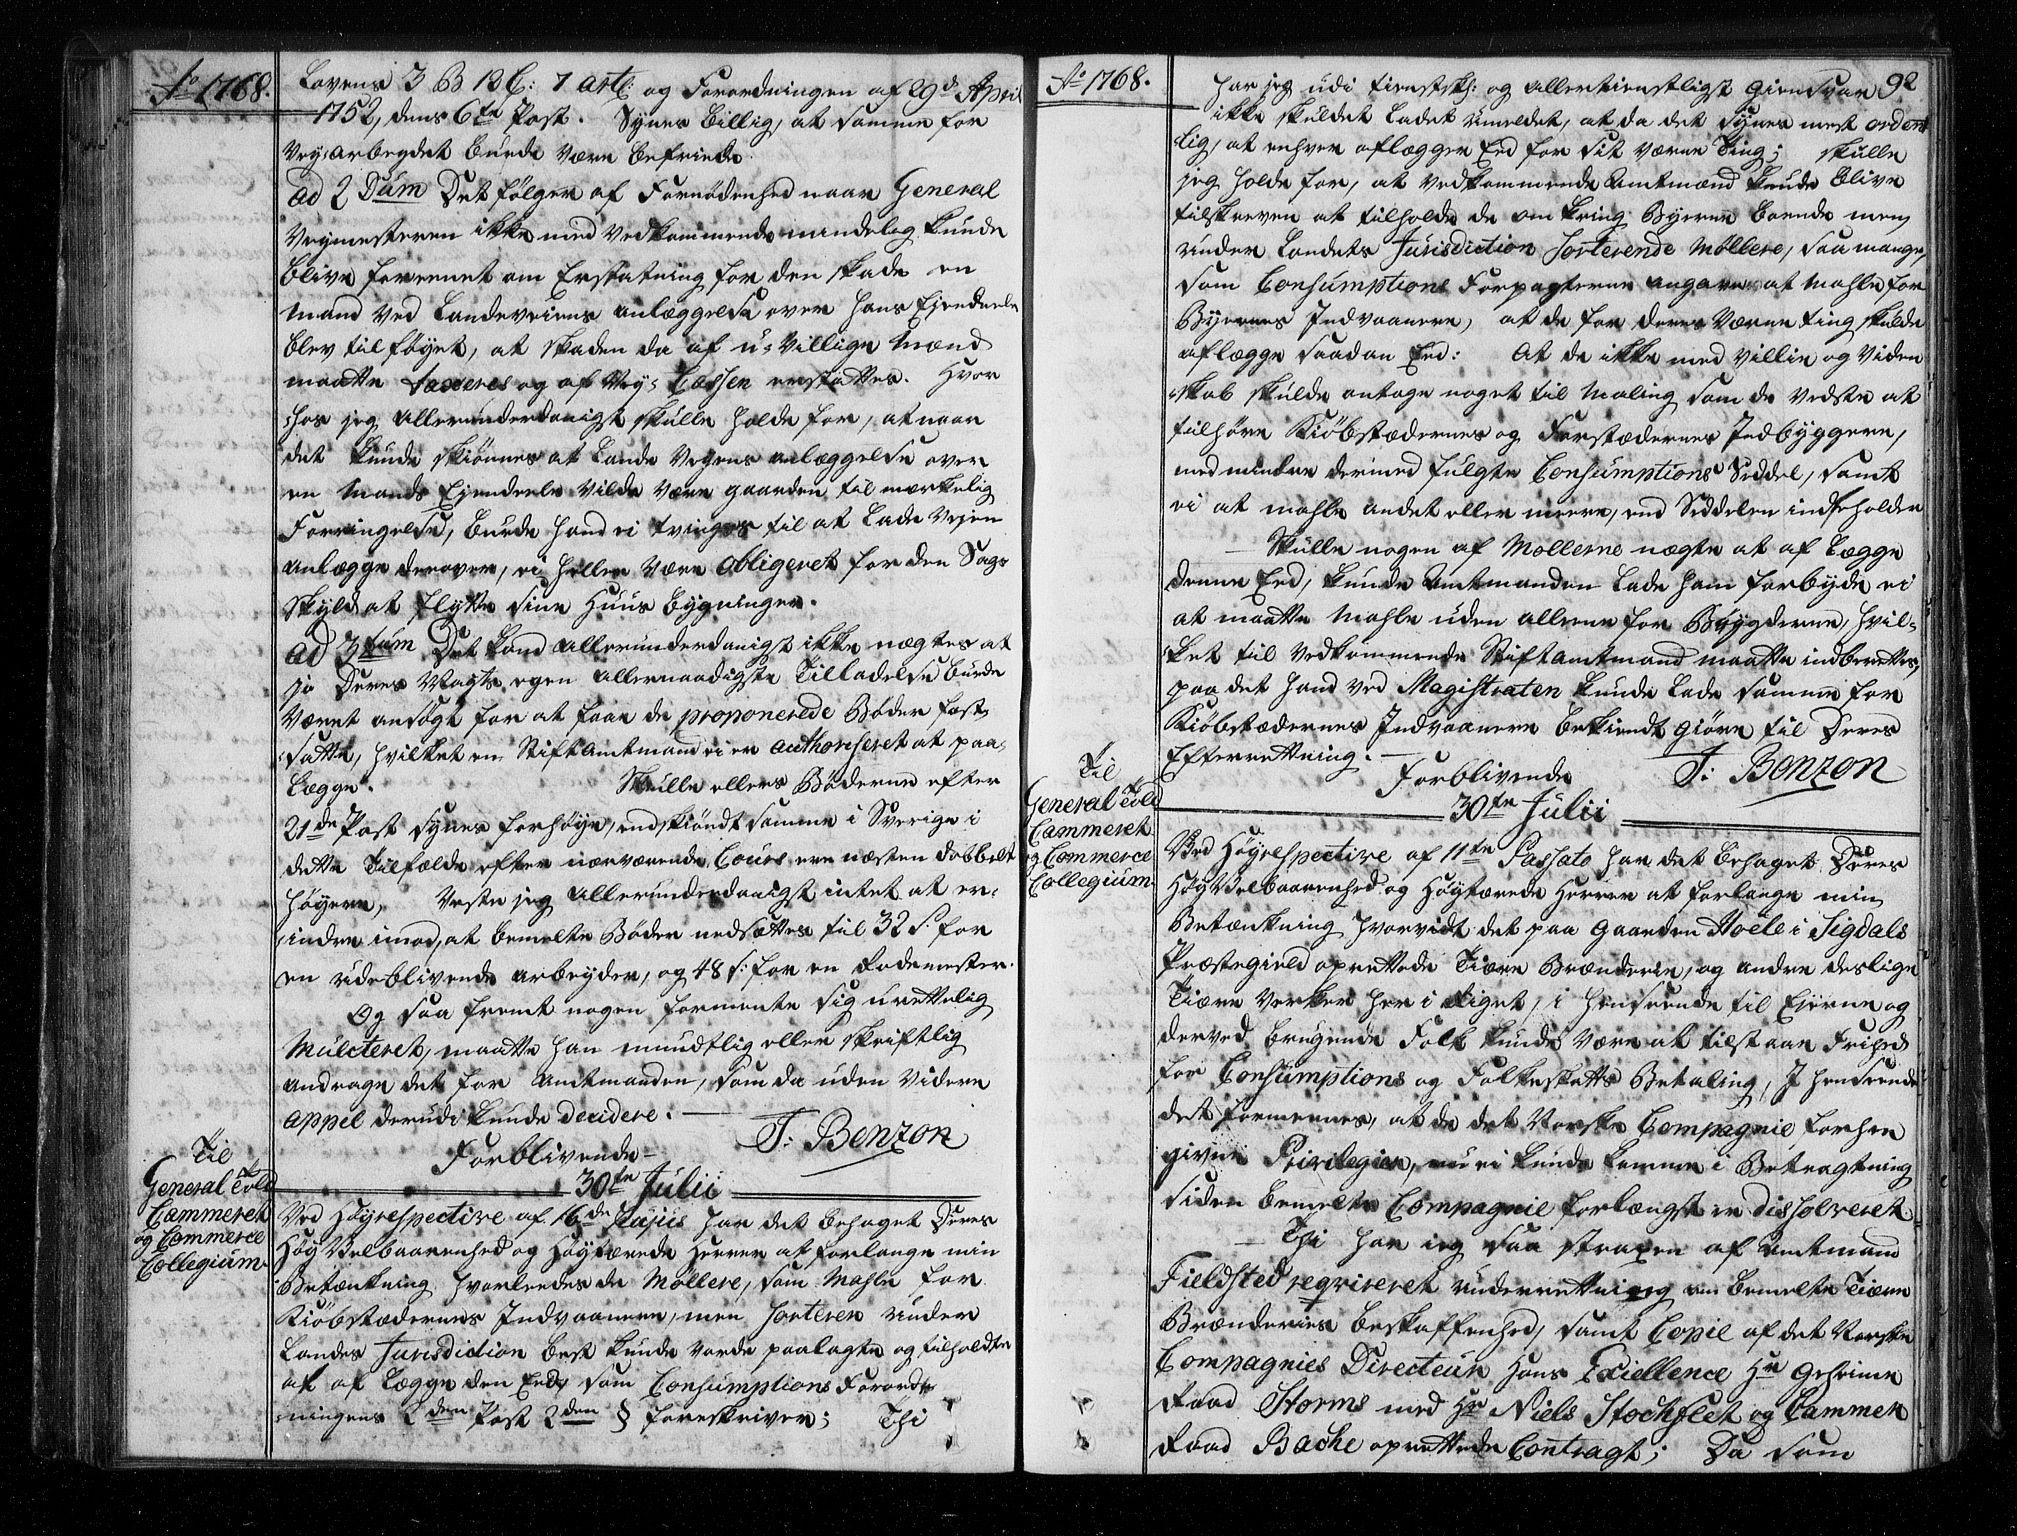 Ao 1768.
Lovens 3 B 13 C: 7 artl: og Forordningen af 29d April
1752, dens 6te Post. Synes billig, at samme for
Vey-arbeydet burde være befriede.
ad 2dum Det følger af Fornødenhed naar General
Veymesteren ikke med Vedkommende mindelig kunde
blive foreenet om Erstatning for den skade en
mand ved Landeveiens anlæggelse over hans Ejendeele
blev tilføyet, at skaden da af u-villige Mænd
maatte taxeres og af Vey-Cassen erstattes. Hvor
hos jeg allerunderdanigst skulle holde for, at naar
det kunde skiønnes at Lande Veyens anlæggelse over
en Mands Ejendeele vilde være gaarden til merkelig
Forringelse, burde hand ei tvinges til at lade Vejen
anlægge derover, ei heller være obligeret for den Sags
skyld at flytte sine Huus bygninger.
ad 3tium Det kand allerunderdanigst ikke nægtes at
jo Deres Mayts egen allernaadigste Tilladelse burde
været ansøgt for at faae de proponerede Bøder fast-
satte, hvilket en Stiftamtmand ei er authoriseret at paa-
lægge. Skulle ellers Bøderne efter
21de Post synes forhøye, endskiøndt samme i Sverige i
dette Tilfælde efter nærværende Cours ere næsten dobbelt
høyere, Veste jeg allerunderdanigst intet at er-
indre imod, at bemelte Bøder nedsættes til 32 s. for
en udeblivende arbeyder, og 48 s: for en Rodemester.
Og saa fremt nogen formente sig urettelig
Mulcteret, maatte han mundtlig eller skriftlig
andrage det for Amtmanden, som da uden videre
appel derudi kunde decidere.
Forblivende J: Benzon
Til
General Told
Cammeret
og Commerce
Collegium.
30te Julii
Ved Høyrespective af 16de hujus har det behaget Deres
Høy Velbaarenhed og Høytærede Herrer at forlange min
Betænkning hvorledes de Møllere, som Mahle for
Kiøbstædernes Indvaanere, men sorterer under
Landes Jurisdiction best kunde vorde paalagte og tilholdte
at af Lægge den Eed, som Consumptions Forord-
ningens 2den Post 2den § foreskriver; Thi
Ao 1768.
92
har jeg udi tienstsk: og allertienstligst Giensvar
ikke skuldet ladet umeldet, at da det synes mest ordent
lig, at enhver aflægger Eed for sit Værne Ting; skulle
jeg holde for, at Vedkommende Amtmænd kunde blive
tilskreven at tilholde de omkring Byerne boende men
under Landets Jurisdiction sorterende Møllere, saa mange
som Consumptions Forpagterne angave at Mahle for
Byernes Indvaanere, at de for deres Værne ting skulde
aflægge saadan Eed: At de ikke med Villie og Viden
skab skulde antage noget til Maling som de Vedste at
tilhøre Kiøbstædernes og Forstædernes Indbyggere,
med mindre dermed fulgte Consumptions Seddel, samt
ei at mahle andet eller meere, end Seddelen indeholder
Skulle nogen af Møllerne nægte at af Lægge
denne Eed, kunde Amtmanden lade ham forbyde ei
at maatte Mahle uden alleene for Bøygderne, hvil-
ket til Vedkommende Stiftamtmand maatte indberettes,
paa det hand ved Magistraten kunde lade samme for
Kiøbstædernes Indvaanere bekiendt giøre til Deres
Efterretning.
Forblivende J: Benzon
Til
General Told
Cammeret
og Commerce
Collegium.
30te Julii
Ved Høyrespective af 11te Passato har det behaget Deres
Høy Velbaarenhed og Høytærede Herrer at forlange min
Betænkning hvorvidt det paa Gaarden Hoële i Sigdals
Præstegield oprettede Tiære Brænderie, og andre deslige
Tiære Verker her i Riget, i henseende til Eierne og
derved brugende Folk kunde være at tilstaae Frihed
for Consumptions og Folkeskatts Betaling, I henseende
det formeenes, at de det Norske Compagnie forhen
givne Privilegier, nu ei kunde komme i Betragtning
siden bemelte Compagnie forlængst er dissolveret.
Thi har jeg saa straxen af Amtmand
Fieldsted reqvireret underretning om bemelte Tiære
Brænderies beskaffenhed, samt Copie af det Norske
Compagnies Directeur Hans Excellence Hr Geheime
Raad Storms med Hr Niels Stochflet og Cammer
Raad Bache oprettede Contragt; Da som